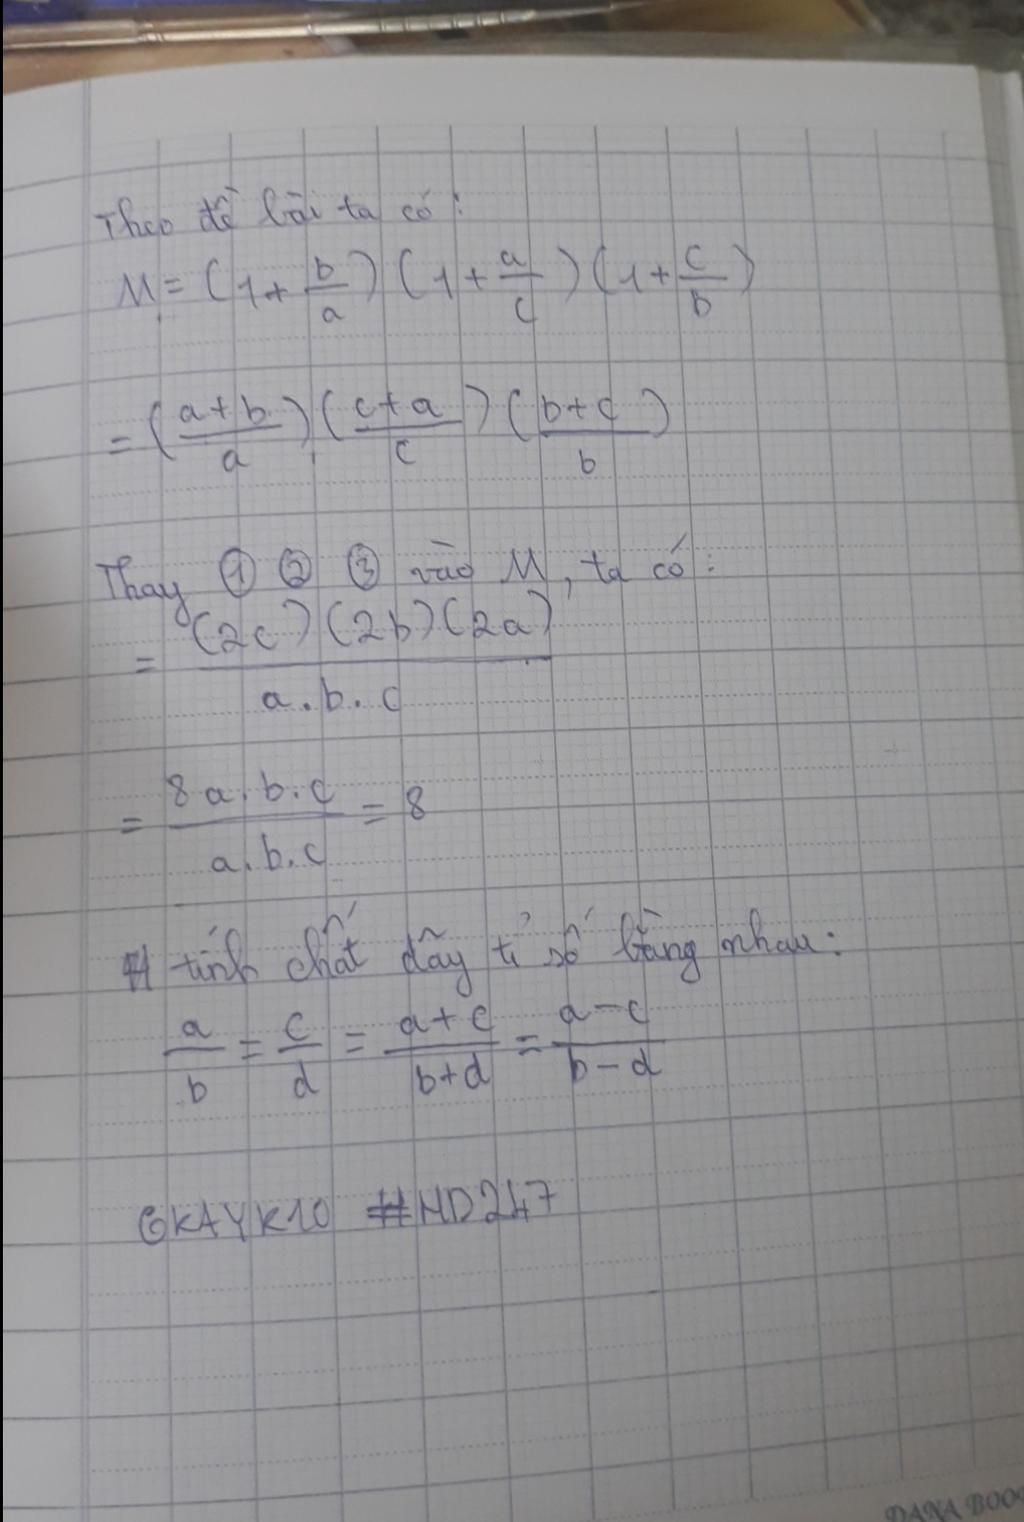 Theo đề bài ta có:
M = (1 + b/a) (1 + a/c) (1 + c/b)
= (a+b/a) (c+a/c) (b+c/b)
Thay ① ② ③ vào M, ta có:
= (2c) (2b) (2a) / a.b.c
= 8a.b.c / a.b.c = 8
tính chất dãy tỉ số bằng nhau:
a/b = c/d = a+c/b+d = a-c/b-d
#HD247
DANA BOOK